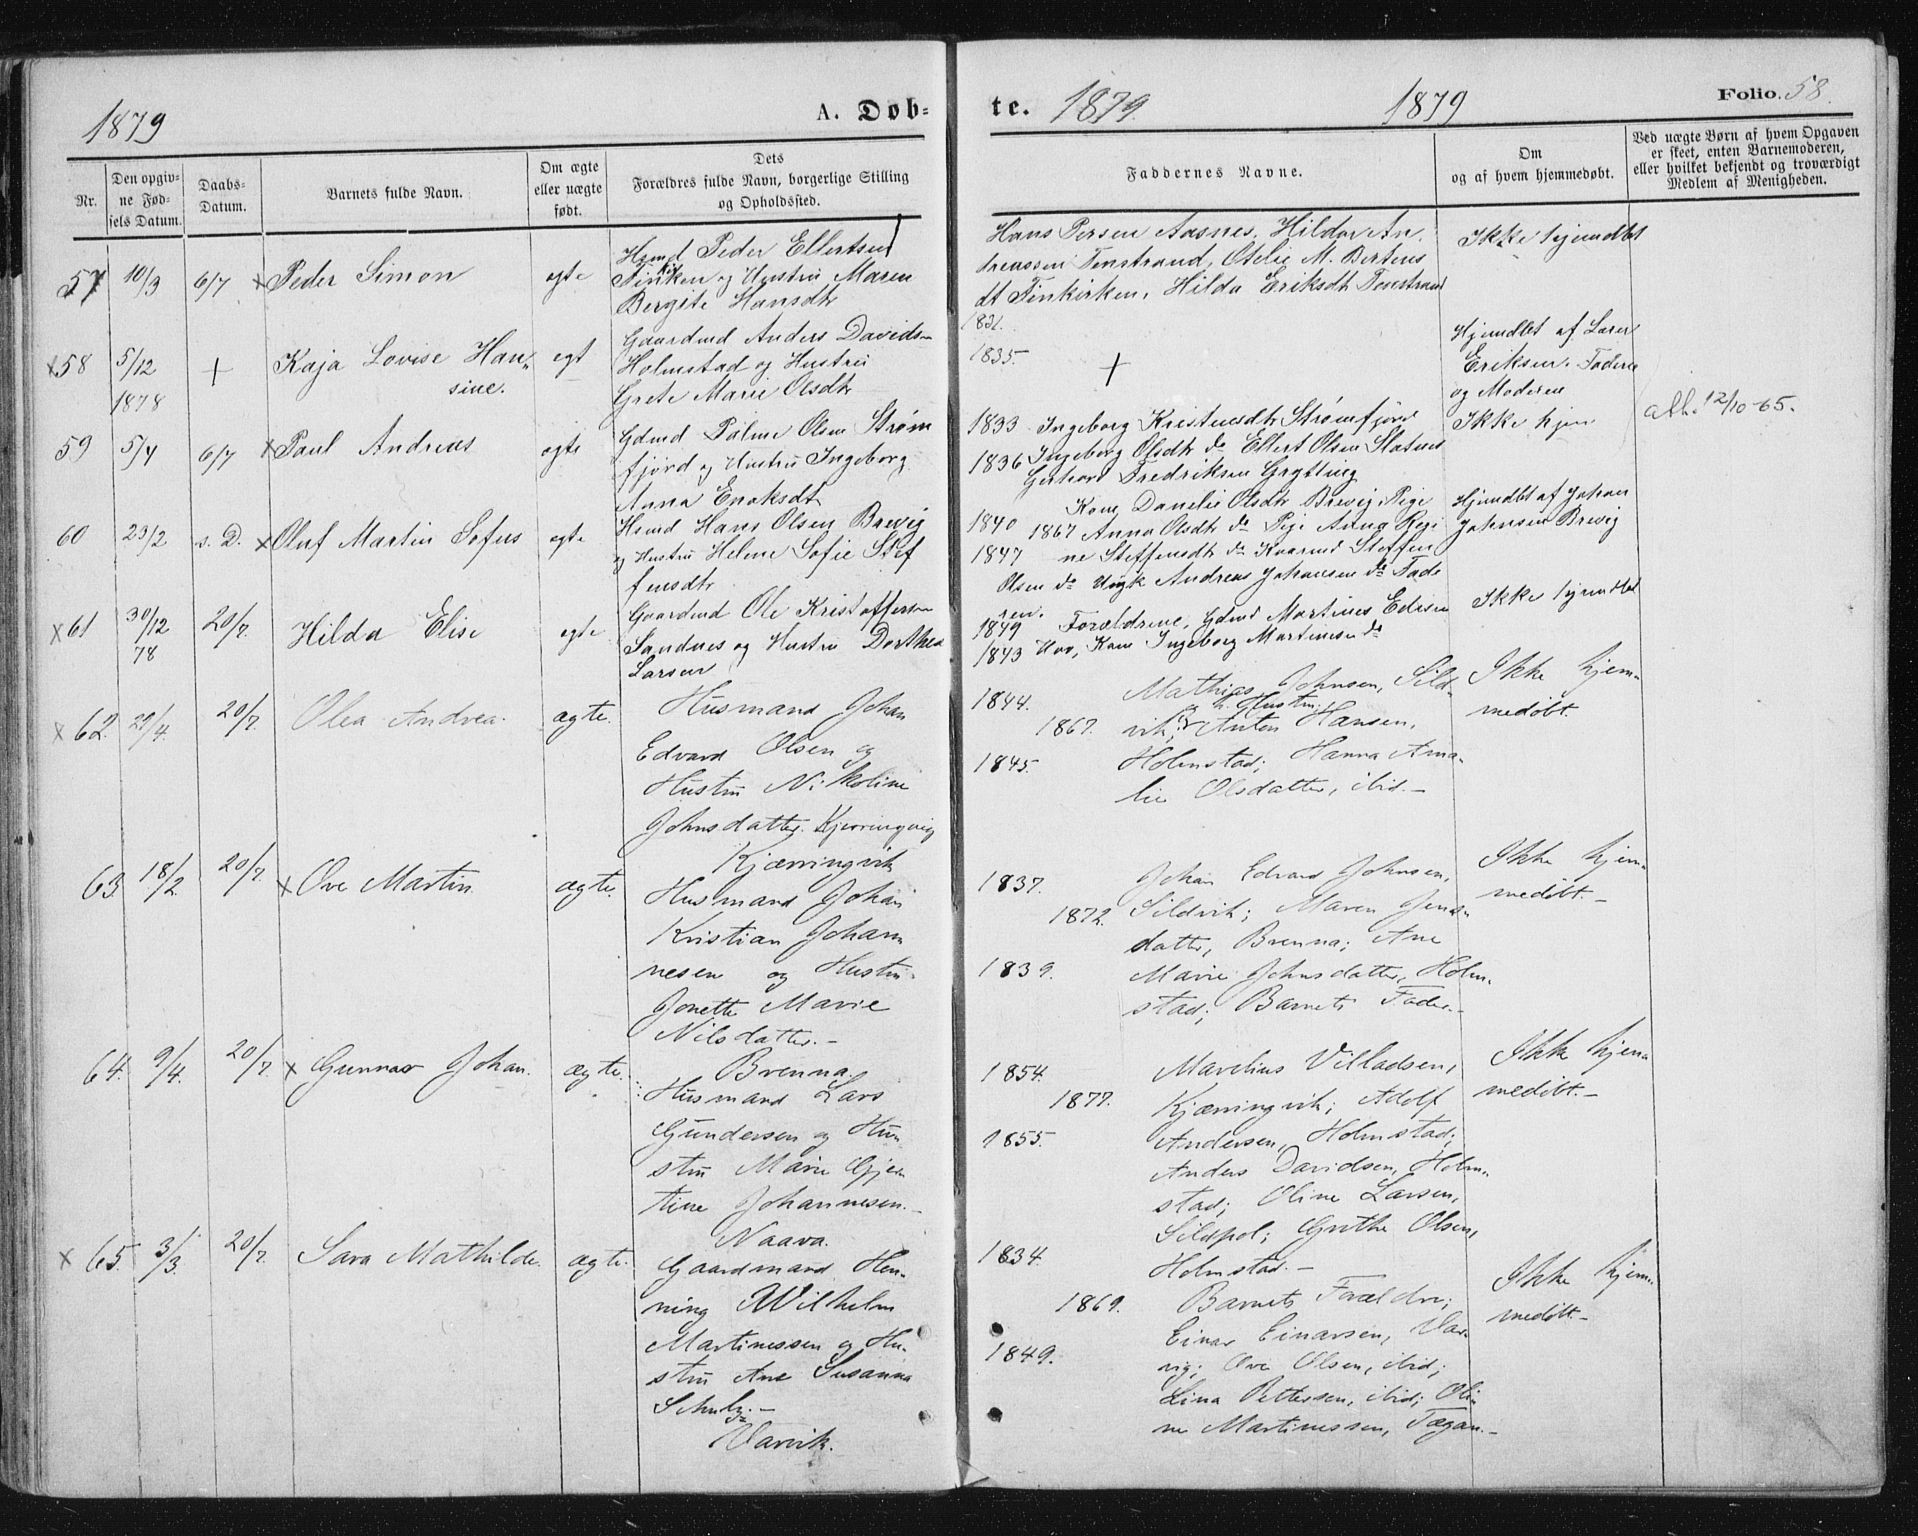 1879
A. Døb-
te. 1879.
1879
Folio. 58.
Nr.
Den opgiv-
ne Fød-
sels Datum.
Daabs-
Datum.
Barnets fulde Navn.
Om ægte
eller uægte
født.
Dets
Forældres fulde Navn, borgerlige Stilling
og Opholdssted.
Faddernes Navne.
Om
og af hvem hjemmedøbt.
Ved uægte Børn af hvem Opgaven
er skeet, enten Barnemoderen,
eller hvilket bekjendt og troværdigt
Medlem af Menigheden.
57 10/3 6/7 x Peder Simon egte
Hsmd Peder Ellertsen
og Hustru Maren
Bergite Hansdtr
Hans Persen Aasnes, Hilda An
dreassen Tenstrand, Otelie M. Bertens
dt Finkirken, Hilda Eriksdt Tenstrand
Ikke hjemdbt
x 58 5/12 1878 + Kaja Lovise Han-
sine.
egt
Gaardmd Anders Davids-
Holmstad og Hustru
Grete Marie Olsdtr
1831.
1835.
+
Hjemdbt af Larer
Eriksen. Faderen
og Moderen
59 5/4 6/7 x Paul Andreas egte
Gdmd Palme Olsen Strøm
fjord og Hustru Ingeborg
Anna Enoksdt
1833 Ingeborg Kristensdtr Strømfjord
1836 Ingeborg Olsdtr do Ellert Olsen Slotnes
Gerhard Fredriksen Grytting
Ikke hjem
att. 12/10-65.
60 23/2 s. D. x Oluf Martin Sofus egte
Hsmd Hans Olsen Brevig
og Hustru Helene Sofie Stef
fensdtr
Kone Danelie Olsdtr Brevig, Pige
1840 1867 Anna Olsdtr do Pige Anna Regi
1847 ne Steffensdt do Steffen
Olsen do Ungk Andreas Johansen do Fade
ren.
Hjemdbt af Johan
Johnsen Brevig
x 61 30/12 78 20/7. Hilda Elise egte
Gaardmd Ole Kristoffersen
Sandnes og Hustru Dorthea
Larsen
1849 Forældrene, Gdmd Martines Edisen
1843 Kone Ingeborg Martinesen do
Ikke hjemdbt
x 62. 29/4. 20/7. Olea Andrea. ægte.
Husmand Johan
Edvard Olsen og
Hustru Nikoline
Johnsdatter. Kjerringvig
1844.
1867.
1845.
Mathias Johnsen, Sild-
vik; og Hustru Anton Hansen,
Holmstad; Hanna Ama-
lie Olsdatter, ibid.-
Ikke hjem-
medøbt.
63 18/2 20/7. x Ove Martin. ægte.
Kjærringvik
Husmand Johan
Kristian Johan
nesen og Hustru
Jonette Marie
Nilsdatter.-
1837.
1872.
1839.
Johan Edvard Johnsen,
Sildvik; Maren Jens-
datter, Brenna; Ane
Marie Johnsdatter, Holm-
stad; Barnets Fader.-
Ikke hjem-
medøbt.-
64. 9/4. 20/7. x Gunnar Johan. ægte.
Brenna.
Husmand Lars
Gundersen og Hu-
stru Marie Gjer
tine Johannesen.-
1854.
1877.
1855.
Marelius Villadsen,
Kjærringvik; Adolf
Andersen, Holmstad;
Anders Davidsen, Holm-
stad; Oline Larsen,
Sildpol; Grethe Olsen,
Holmstad.-
Ikke hjem
medøbt.-
x 65. 3/3. 20/7. Sara Mathilde. ægte.
Naava.
Gaardmand Hen-
ning Wilhelm
Martinussen og Hu-
stru Ane Susanna
Schulz.-
Varvik.
1834.
1869.
1849.
Barnets Forældre;
Einar Einarsen, Var-
vig; Ove Olsen, ibid;
Lina Pettersen, ibid; Oli-
ne Martinussen, Tægan.-
Ikke hjem-
medøbt.-